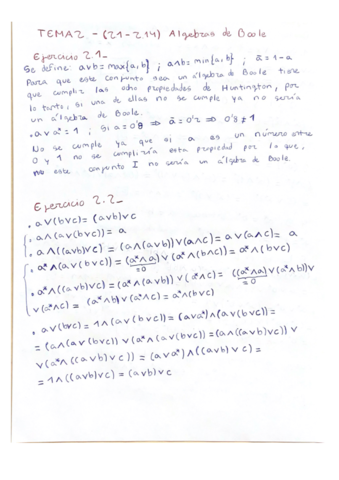 TEMA 2 - (2.1-2.14) Algebras de Boole
Ejercicio 2.1_
Se define: a∨b = max{a,b} ; a∧b = min{a,b} ; ā = 1-a
Para que este conjunto sea un álgebra de Boole tiene
que cumplir las ocho propiedades de Huntington, por
lo tanto, si una de ellas no se cumple ya no sería
un álgebra de Boole.
· a∨a* = 1 ; si a = 0'8 ⇒ ā = 0'2 ⇒ 0'8 ≠ 1
No se cumple ya que si a es un número entre
0 y 1 no se cumpliría esta propiedad por lo que,
este conjunto I no sería un álgebra de Boole.
Ejercicio 2.2_
· a∨(b∨c) = (a∨b)∨c
· a∧(a∨(b∨c)) = a
· a∧((a∨b)∨c) = (a∧(a∨b))∨(a∧c) = a∨(a∧c) = a
· a*∧(a∨(b∨c)) = (a*∧a)∨(a*∧(b∨c)) = a*∧(b∨c)
=0
· a*∧((a∨b)∨c) = (a*∧(a∨b))∨(a*∧c) = ((a*∧a)∨(a*∧b))∨
=0
∨(a*∧c) = (a*∧b)∨(a*∧c) = a*∧(b∨c)
· a∨(b∨c) = 1∧(a∨(b∨c)) = (a∨a*)∧(a∨(b∨c)) =
= (a∧(a∨(b∨c)) ∨ (a*∧(a∨(b∨c)) = (a∧((a∨b)∨c)) ∨
∨(a*∧((a∨b)∨c)) = (a∨a*)∧((a∨b)∨c) =
= 1∧((a∨b)∨c) = (a∨b)∨c